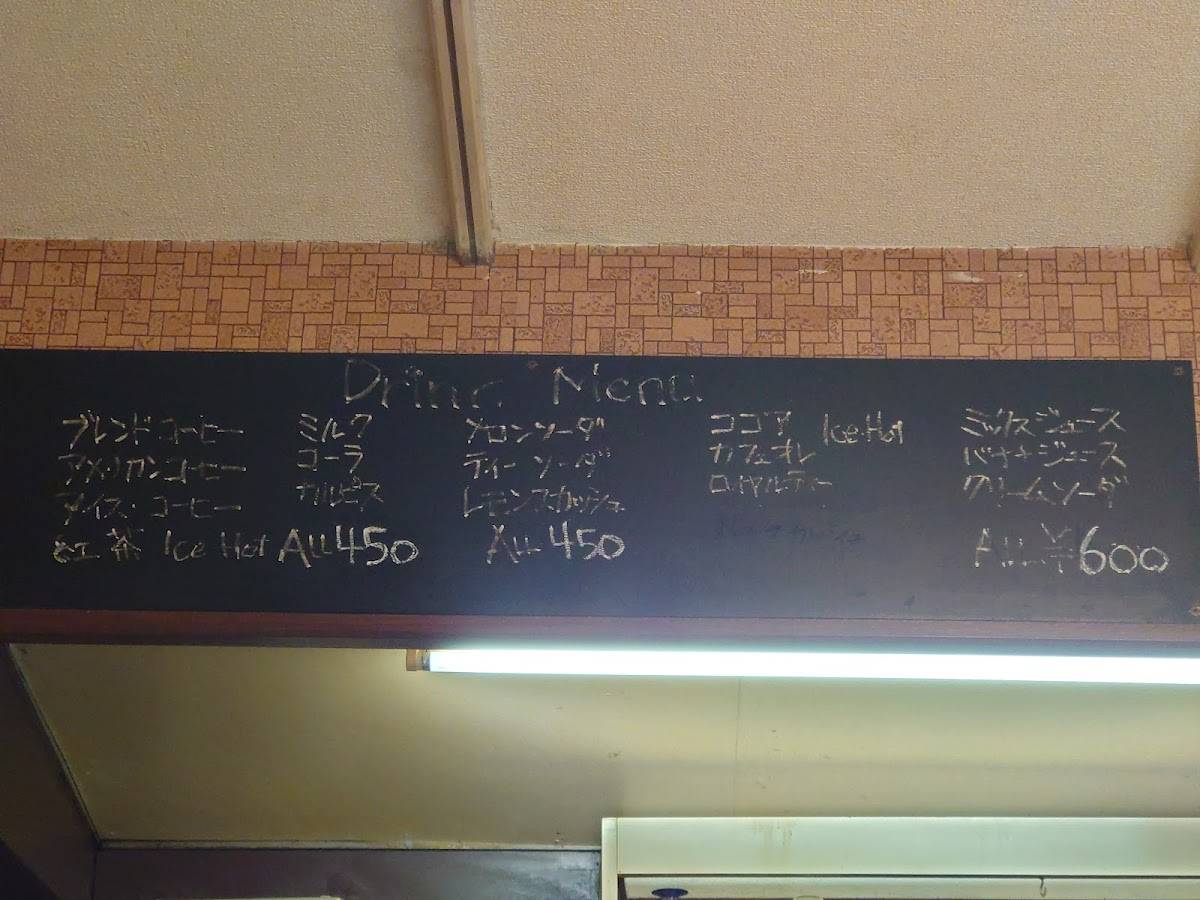 Drink Menu
ブレンドコーヒー
アメリカンコーヒー
アイス・コーヒー
紅茶 Ice Hot All 450
ミルク
コーラ
カルピス
メロンソーダ
ティーソーダ
レモンスカッシュ
All 450
ココア Ice Hot
カフェオレ
ロイヤルティー
ミックスジュース
バナナジュース
クリームソーダ
All ¥600